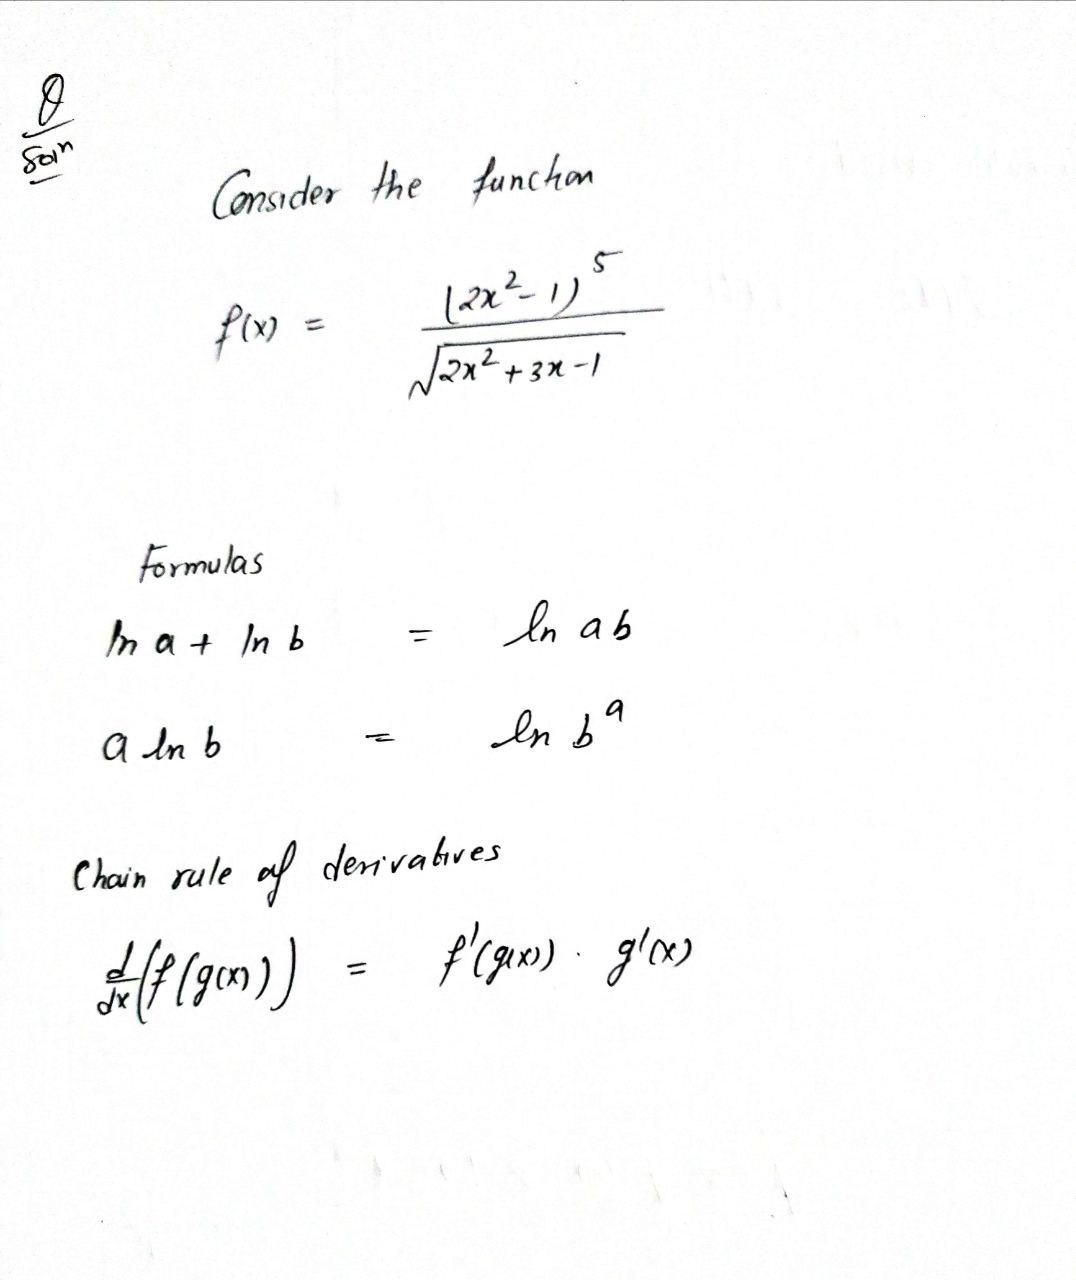 Q
Soln
Consider the function
f(x) = (2x²-1)⁵ / √2x²+3x-1
Formulas
ln a + ln b = ln ab
a ln b = ln bᵃ
Chain rule of derivatives
d/dx (f(g(x))) = f'(g(x)) · g'(x)